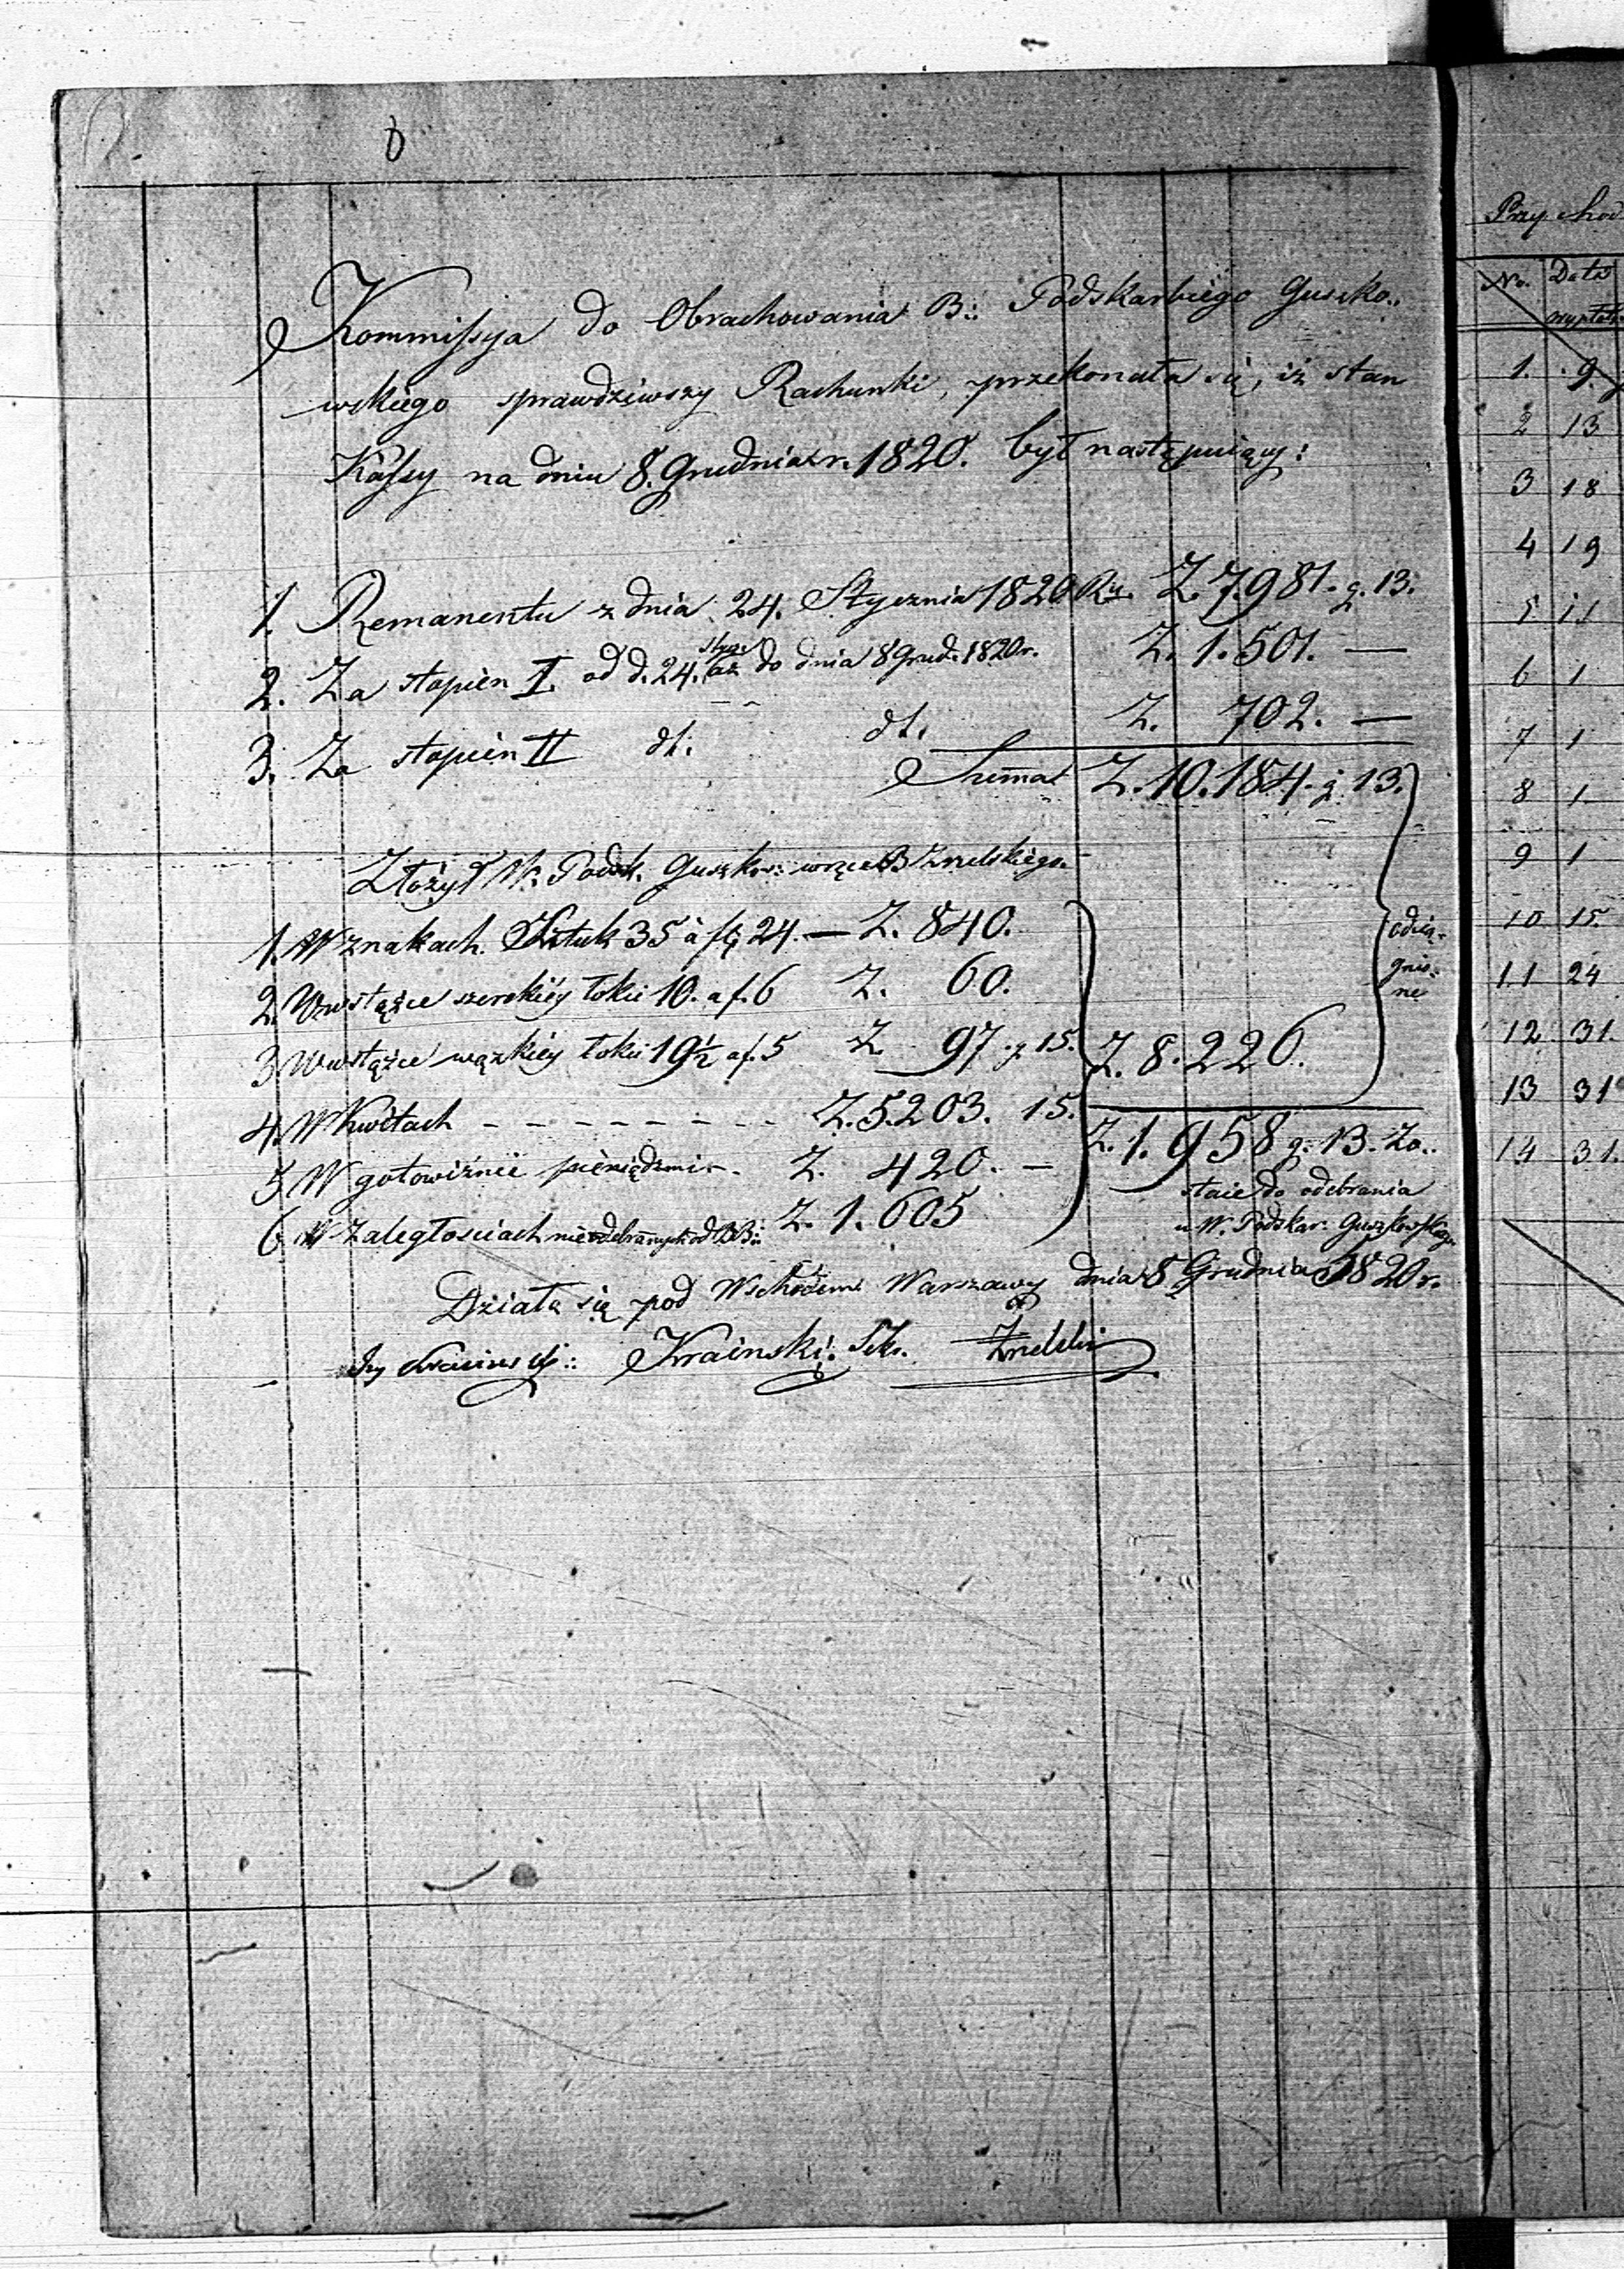 6
Kommissya do Obrachowania B: Podskarbiego Guszko..
wskiego sprawdziwszy Rachunki, przekonała się, iż stan
Kassy na dniu 8. Grudnia r. 1820. był następuiący:
1. Remanentu z dnia 24. Stycznia 1820 Ru. Z. 7.981. g. 13.
2. Za stopień I. od d. 24. Stycz. aż do dnia 8 Grud. 1820 r. Z. 1.501. —
3. Za stopień II dt. dt. Z. 702. —
Summa Z. 10.184. g 13.
Złożył W. Podsk. Guszkow: w ręce B
1. W znakach Sztuk 35 à fl 24. — Z. 840.
2. W wstążce szerokiéy łokci 10. a f. 6 Z. 60.
3. W wstążce wązkiéy łokci 19 1/2 a f. 5 Z. 97. g 15.
4. W Kwitach - - - - - - - - Z. 5.203. 15.
5. W gotowiźnie pieniędzmi -. Z. 420. —
6. W zaległościach nieodebranych od BB: Z. 1.605
odcią-
gnio:
ne
Z. 8.226.
Z. 1.958 g. 13. Zo..
staie do odebrania
u W. Podskar. Guszkowskiego
Działo się pod Wschodem Warszawy dnia 8 Grudnia 1820 r.
Krainski. Sekr.
Przychod
No. Data
wypłat
1. 9
2 13
3 18
4 19
5 11
6 1
7 1
8 1.
9 1
10 15.
11 24
12 31.
13 31
14 31.